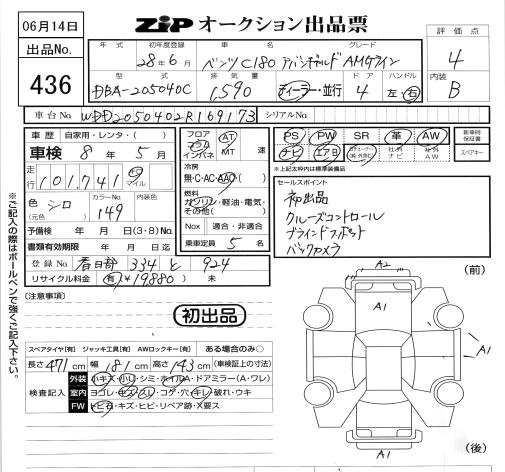 06月14日
ZiPオークション出品票
評価点
4
内装
B
出品No.
436
年式 初年度登録 車名 グレード
28年6月 ベンツC180 アバンギャルド AMGライン
型式 排気量 ドア ハンドル
DBA-205040C 1,590 ディーラー・並行 4 左・右
車台No WDD2050402R169173 シリアルNo
車歴 自家用・レンタ( )
車検 8年5月
走行 101,741 km マイル
色 シロ (元色) カラーNo 149 内装色
予備検 年 月 日(3・8)No
書類有効期限 年 月 日迄
登録No 春日部 334 と 924
リサイクル料金 有 ¥19880 未
フロア コラム インパネ AT MT 速
冷房 無・C・AC・AAC
燃料 ガソリン・軽油・電気・その他( )
Nox 適合・非適合
乗車定員 5名
PS PW SR 革 AW
ナビ エアB 社外ナビ 社外AW
新車時保証書
スペアキー
*上記太枠内は標準装備品
セールスポイント
初出品
クルーズコントロール
ブラインドスポット
バックカメラ
[注意事項]
初出品
スペアタイヤ[有] ジャッキ工具[有] AWロックキー[有] ある場合のみ○
長さ 471cm 幅 181cm 高さ 143cm (車検証上の寸法)
検査記入
外装 小キズ・小凹・シミ・ホイルA・ドアミラー(A・ワレ)
室内 ヨゴレ・キズ・スレ・コゲ・穴・キレ・破れ・ウキ
FW トビ石・キズ・ヒビ・リペア跡・X要ス
(前)
A2
A1
A1
A1
A1
(後)
※ご記入の際はボールペンで強くご記入下さい。